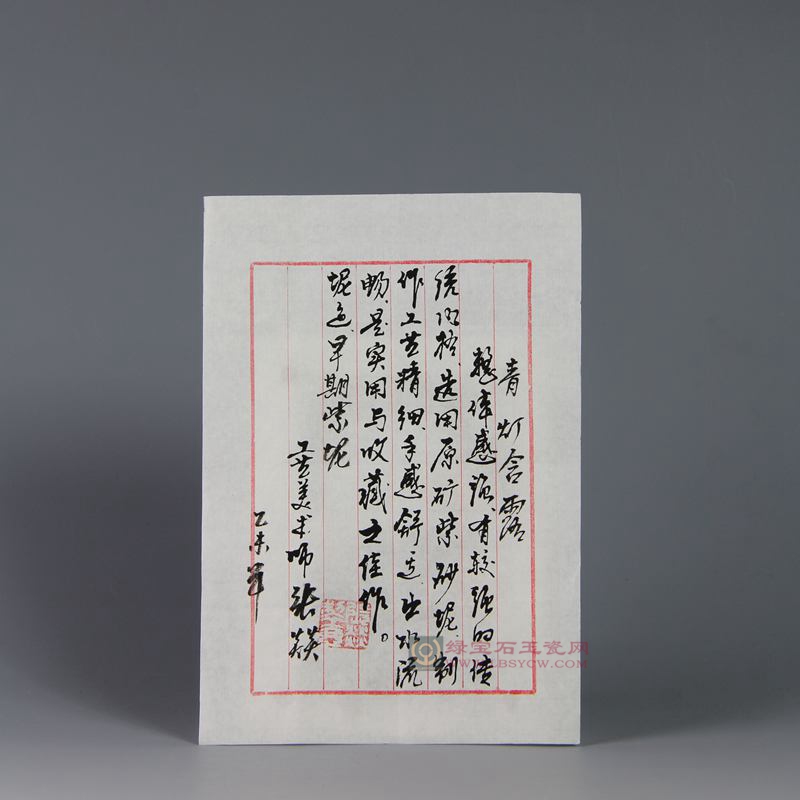 青灯含露
整体感强,有较强的传
统风格,选用原矿紫砂坭,制
作工艺精细,手感舒适,出水流
畅,是实用与收藏之佳作。
坭色:早期紫坭
工艺美术师 张燚
乙未年
绿宝石玉瓷网
WWW.LBSYCW.COM